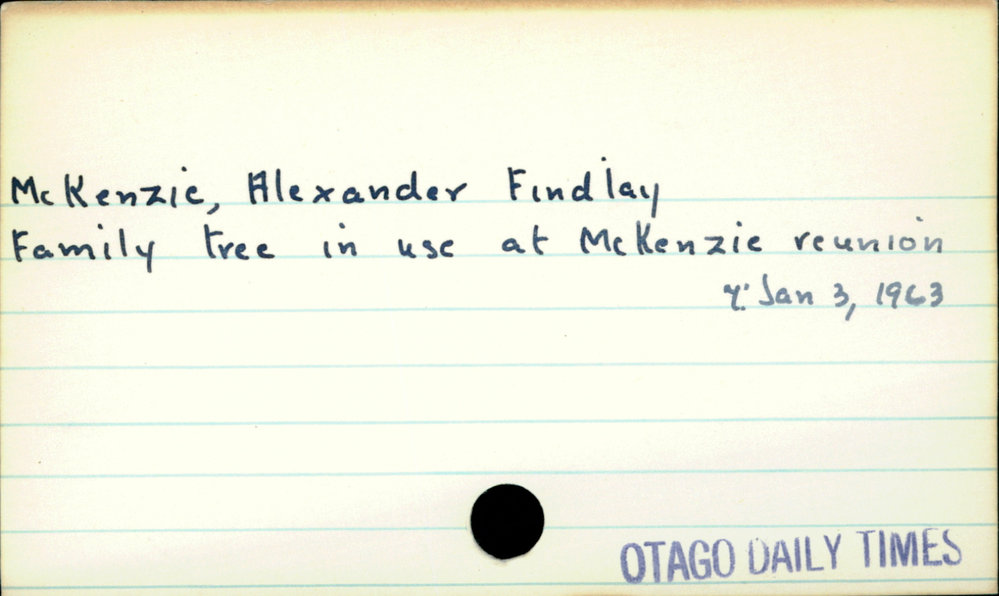 McKenzie, Alexander Findlay
Family tree in use at McKenzie reunion
Jan 3, 1963
OTAGO DAILY TIMES